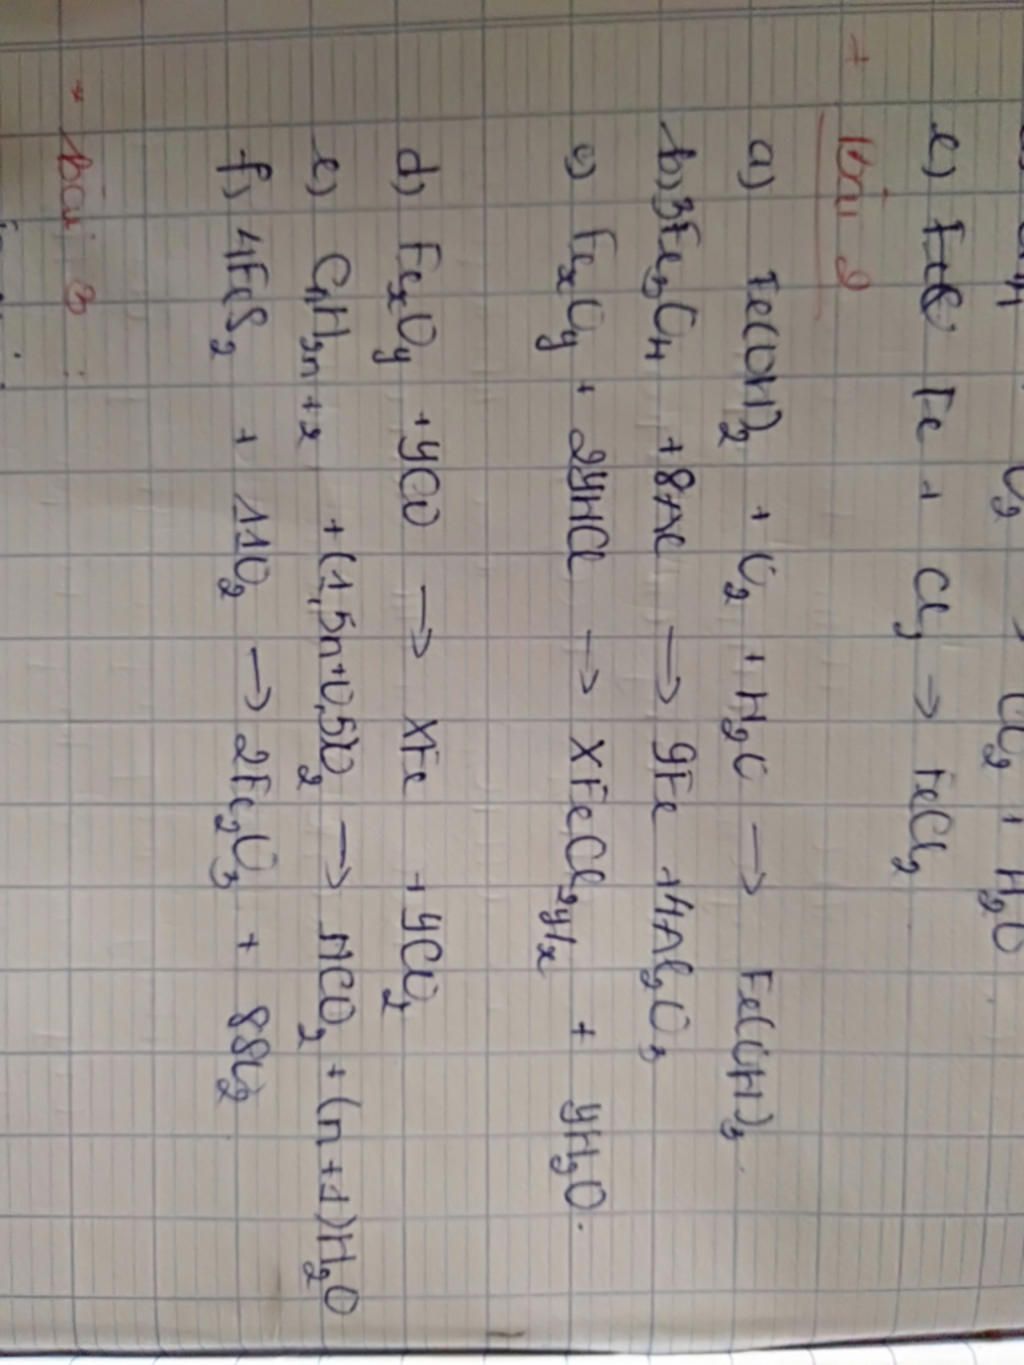 O₂ → CO₂ + H₂O
e) Fe + Cl₂ → FeCl₂
+ Bài 2
a) Fe(OH)₂ + O₂ + H₂O → Fe(OH)₃.
b) 3Fe₃O₄ + 8Al → 9Fe + 4Al₂O₃
c) FeₓOy + 2yHCl → xFeCl₂y/x + yH₂O.
d) FeₓOy + yCO → xFe + yCO₂
e) CnH₂n+2 + (1,5n+0,5)O₂ → nCO₂ + (n+1)H₂O
f) 4FeS₂ + 11O₂ → 2Fe₂O₃ + 8SO₂
* bài 3 :